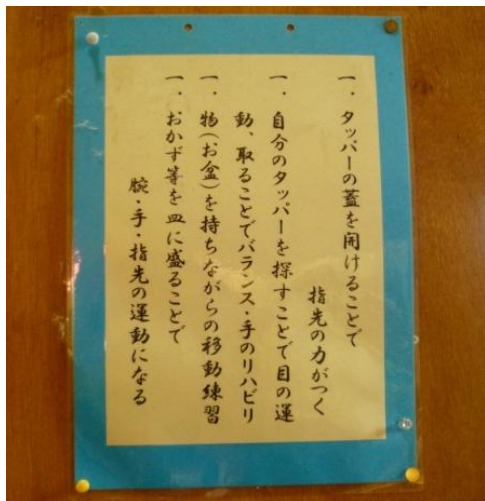 一．タッパーの蓋を開けることで
指先の力がつく
一．自分のタッパーを探すことで目の運
動、取ることでバランス・手のリハビリ
一．物(お盆)を持ちながらの移動練習
一．おかず等を皿に盛ることで
腕・手・指先の運動になる